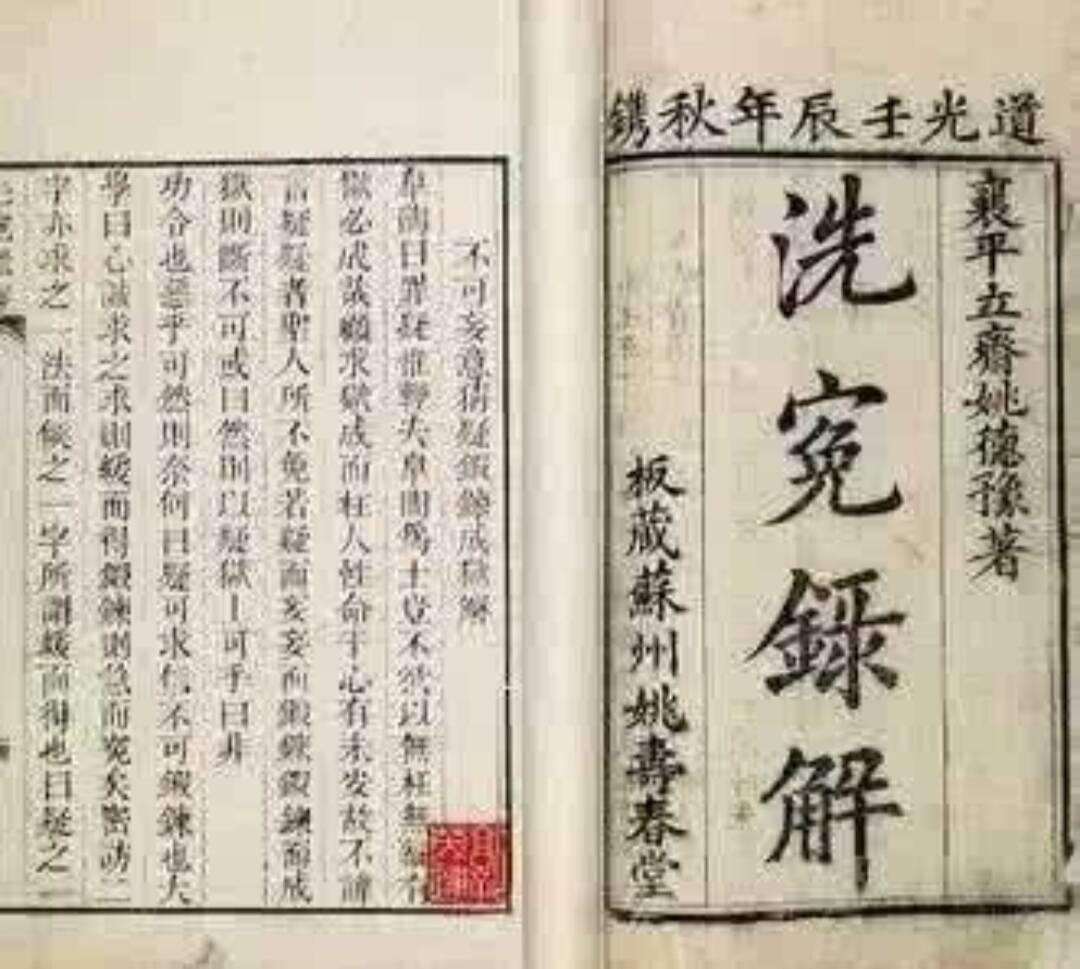 道光壬辰年秋鐫
襄平立齋姚德豫著
洗冤錄解
板藏蘇州姚壽春堂
不可妄意猜疑鍛鍊成獄解
曰罪疑惟輕夫皐陶為士豈不欲以無枉無
獄必成哉顧求獄成而枉人性命于心有未安故不諱
言疑疑者聖人所不免若疑而妄妄而鍛鍊鍛鍊而成
獄則斷不可或曰然則以疑獄上可乎曰非
功令也惡乎可然則奈何曰疑可求信不可鍛鍊也大
學曰心誠求之求則緩而得鍛鍊則急而冤矣密訪二
字亦求之一法而候之一字所謂緩而得也曰疑之一